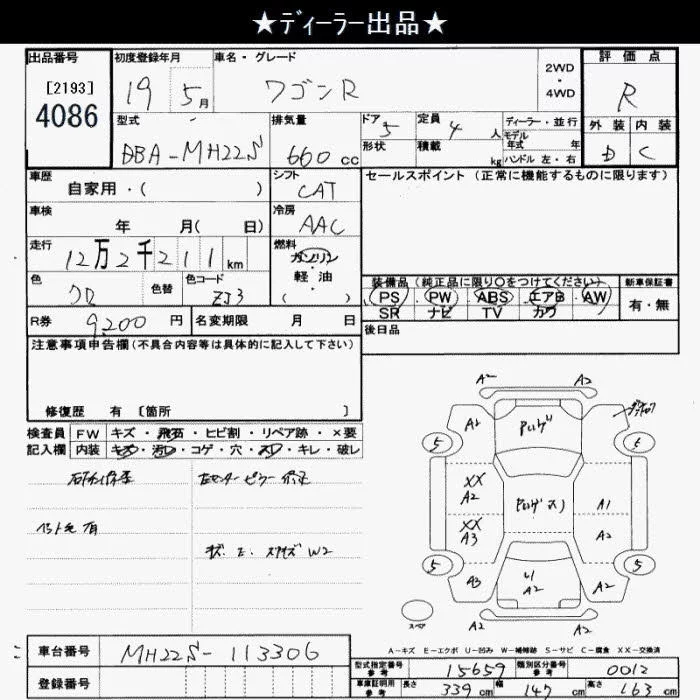 ★ディーラー出品★
出品番号
[2193]
4086
初度登録年月
19 5月
車名・グレード
ワゴンR
2WD
・
4WD
評価点
R
型式
DBA-MH22S
排気量
660cc
ドア
5
形状
定員
4人
積載
kg
ディーラー・並行
モデル
年式 年
ハンドル 左・右
外装 内装
D C
車歴
自家用・( )
シフト
CAT
車検
年 月( 日)
冷房
AAC
走行
12万2千211km
燃料
ガソリン
軽油
・( )
色
クロ
色替
色コード
ZJ3
R券
9200円
名変期限 月 日
セールスポイント(正常に機能するものに限ります)
装備品(純正品に限り○をつけてください)
PS PW ABS エアB AW
SR ナビ TV カワ
新車保証書
有・無
後日品
注意事項申告欄(不具合内容等は具体的に記入して下さい)
修復歴 有 [箇所 ]
検査員
記入欄
FW キズ・飛石・ヒビ割・リペア跡・×要
内装 キズ・汚レ・コゲ・穴・スレ・キレ・破レ
左センターピラー修正
ペット毛有
キズ、凹、スライズ W2
A2 A2
A2
5
XX
A2
XX
A3
5
A3
A1
A2
5
A2
A2
A2 A2
スペア
A-キズ E-エクボ U-凹み W-補修跡 S-サビ C-腐食 XX-交換済
車台番号
MH22S-113306
登録番号
型式指定番号
参考
15659
類別区分番号
参考
0012
車庫証明用
参考
長さ 339cm
幅 147cm
高さ 163cm